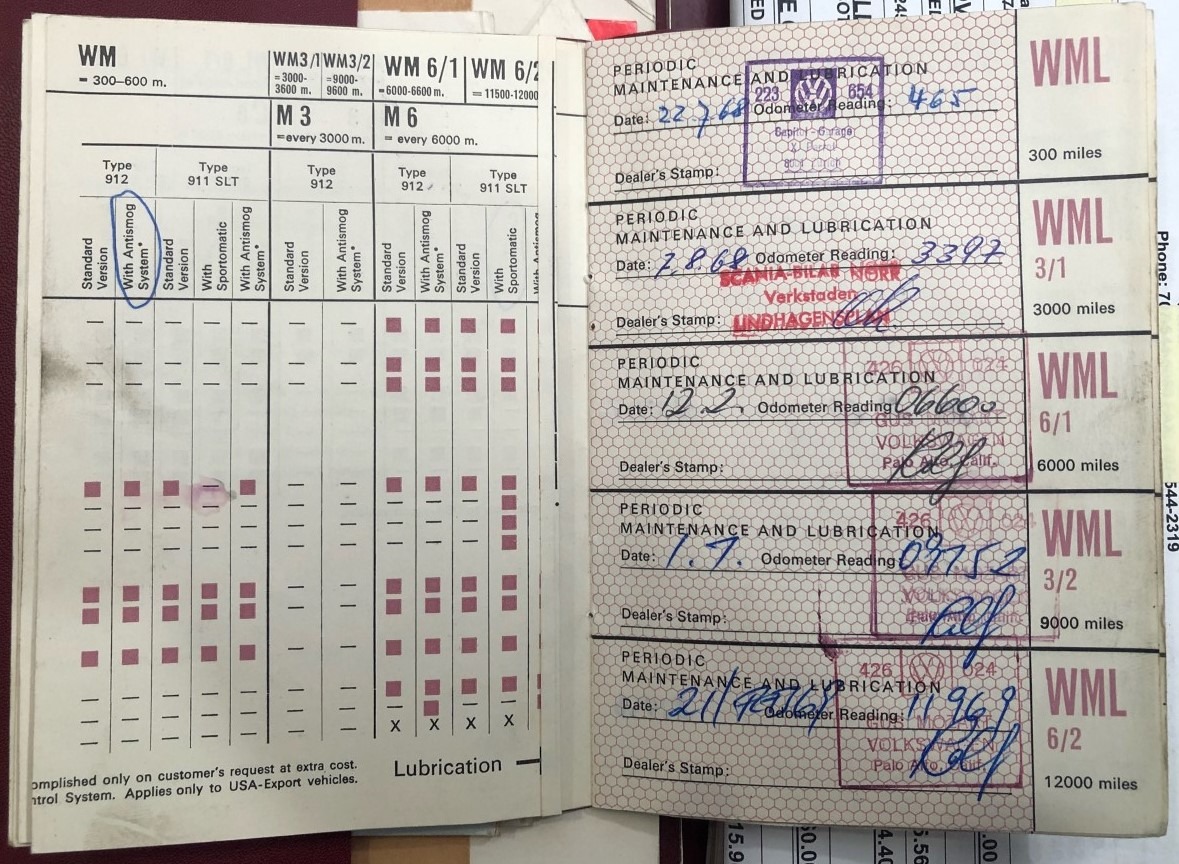 WM
= 300–600 m.
WM3/1
=3000-
3600 m.
WM3/2
=9000-
9600 m.
WM 6/1
=6000-6600 m.
WM 6/2
= 11500-12000
M 3
=every 3000 m.
M 6
= every 6000 m.
Type
912
Type
911 SLT
Type
912
Type
912
Type
911 SLT
Standard
Version
With Antismog
System*
Standard
Version
With
Sportomatic
With Antismog
System*
Standard
Version
With Antismog
System*
Standard
Version
With Antismog
System*
Standard
Version
With
Sportomatic
With Antismog
X X X X
omplished only on customer's request at extra cost.
ntrol System. Applies only to USA-Export vehicles.
Lubrication —
PERIODIC
MAINTENANCE AND LUBRICATION
Date: 22.7.68 Odometer Reading: 465
223 654
Garage
Dealer's Stamp:
WML
300 miles
PERIODIC
MAINTENANCE AND LUBRICATION
Date: 7.8.68 Odometer Reading: 3397
SCANIA-BILAR NORR
Verkstaden
LINDHAGENSPLAN
Dealer's Stamp:
WML
3/1
3000 miles
PERIODIC
MAINTENANCE AND LUBRICATION
426 024
Date: 12.2. Odometer Reading 06600
VOLKSWAGEN
Palo Alto, Calif.
Dealer's Stamp:
WML
6/1
6000 miles
PERIODIC
MAINTENANCE AND LUBRICATION
426 024
Date: 1.7. Odometer Reading 09752
Dealer's Stamp:
WML
3/2
9000 miles
PERIODIC
MAINTENANCE AND LUBRICATION
426 024
Date: Odometer Reading: 11969
GUS MOZART
VOLKSWAGEN
Palo Alto, Calif.
Dealer's Stamp:
WML
6/2
12000 miles
Phone:
544-2319